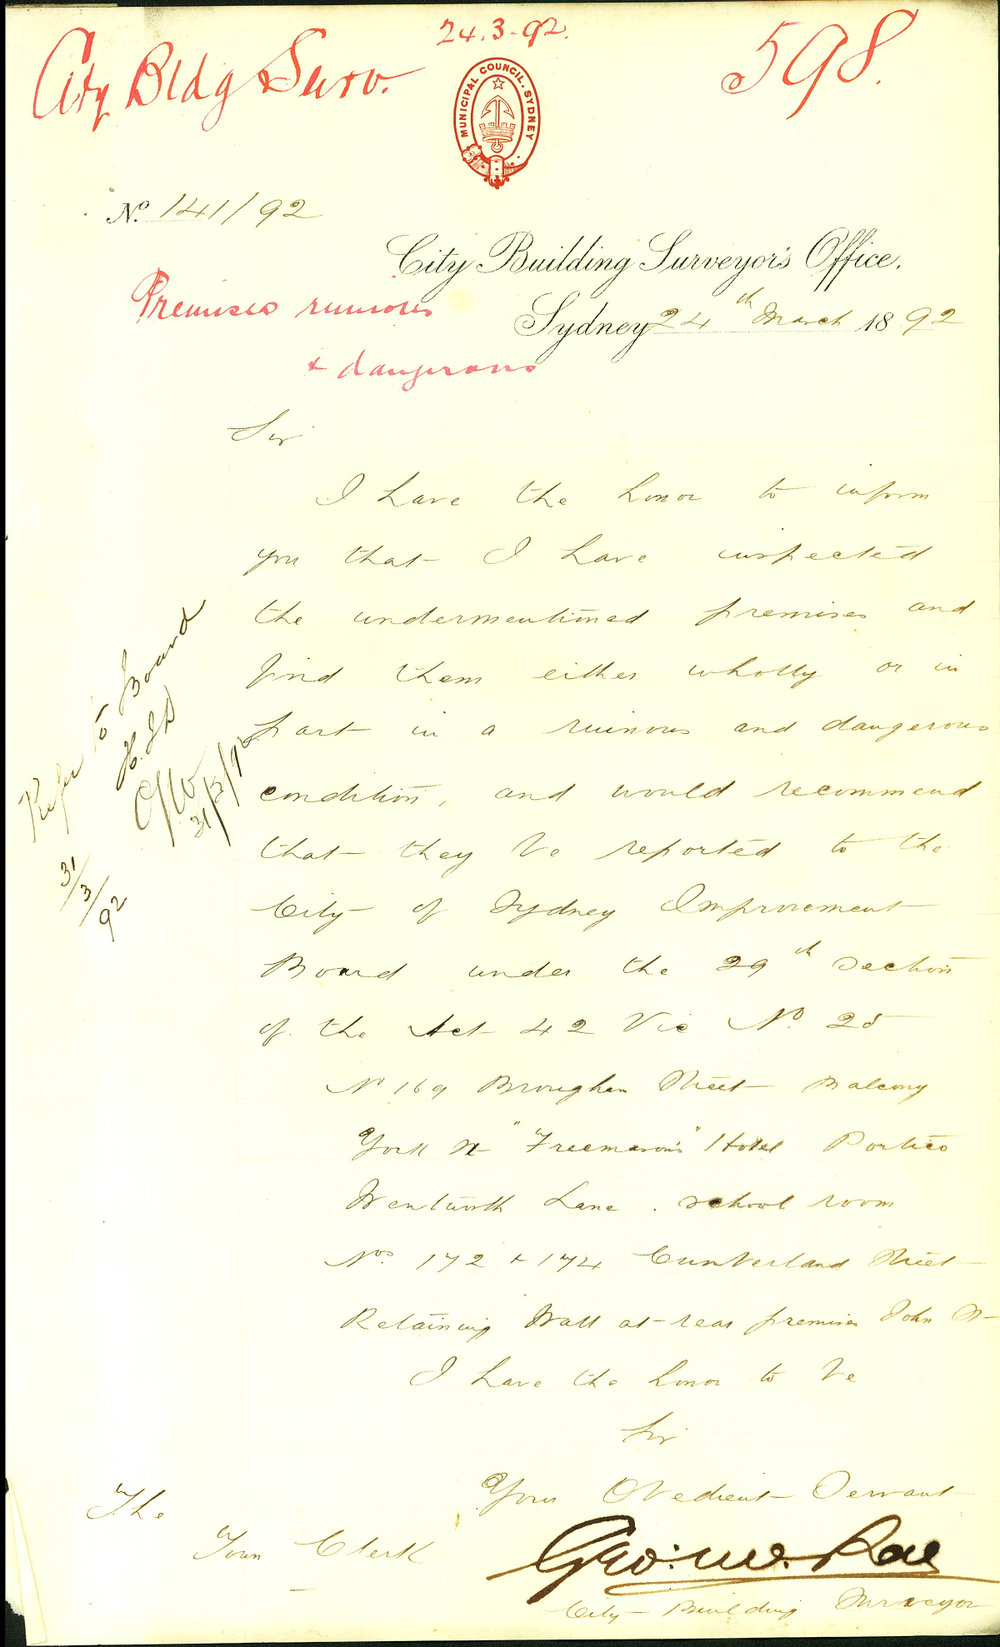 24.3.92.
City Bldg Surv.
598.
MUNICIPAL COUNCIL. SYDNEY
No. 141/92
City Building Surveyor's Office.
Premises ruinous
& dangerous
Sydney 24th March 1892
Sir
I have the honor to inform
you that I have inspected
the undermentioned premises and
find them either wholly or in
part in a ruinous and dangerous
condition, and would recommend
that they be reported to the
City of Sydney Improvement
Board under the 29th section
of the Act 42 Vic No. 25
No 169 Brougham Street Balcony
York St "Freemason's" Hotel Portico
Wentworth Lane. school room
Nos. 172 & 174 Cumberland Street
Retaining Wall at rear premises John St
I have the honor to be
Sir
Your Obedient Servant
Geo. W. Rae
City Building Surveyor
The
Town Clerk
Refer to Board
31/3/92
31/3/92